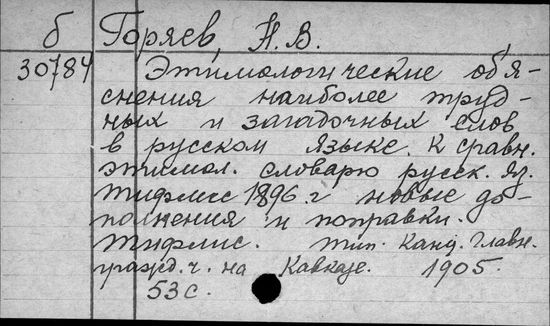 б Горяев, Н. В.
30784 Этимологические объя-
снения наиболее труд-
ных и загадочных слов
в русском языке. К сравн.
этимол. словарю русск. яз.
Тифлис 1896 г новые до-
полнения и поправки.
Тифлис. Тип. Канц. Главн.
гражд. ч. на Кавказе. 1905.
53 с.